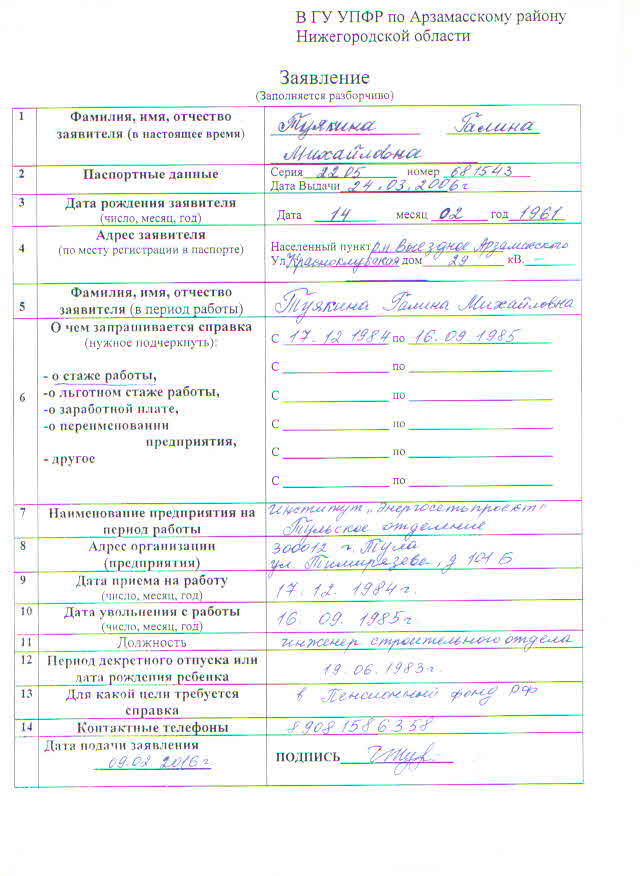 В ГУ УПФР по Арзамасскому району
Нижегородской области
Заявление
(Заполняется разборчиво)
1 Фамилия, имя, отчество
заявителя (в настоящее время)
Туякина Галина
Михайловна
2 Паспортные данные
Серия 22 05 номер 681543
Дата Выдачи 24.03.2006г
3 Дата рождения заявителя
(число, месяц, год)
Дата 14 месяц 02 год 1961
4 Адрес заявителя
(по месту регистрации в паспорте)
Населенный пункт р.п. Выездное Арзамасского
Ул Красноклубская дом 29 кВ. —
5 Фамилия, имя, отчество
заявителя (в период работы)
Туякина Галина Михайловна
6 О чем запрашивается справка
(нужное подчеркнуть):
- о стаже работы,
-о льготном стаже работы,
-о заработной плате,
-о переименовании
предприятия,
- другое
С 17.12 1984 по 16.09.1985
С по
С по
С по
С по
С по
7 Наименование предприятия на
период работы
Институт "Энергосетьпроект"
Тульское отделение
8 Адрес организации
(предприятия)
300012 г. Тула
ул. Тимирязева, д 101 Б
9 Дата приема на работу
(число, месяц, год)
17.12.1984г.
10 Дата увольнения с работы
(число, месяц, год)
16.09.1985г
11 Должность
инженер строительного отдела
12 Период декретного отпуска или
дата рождения ребенка
19.06.1983г.
13 Для какой цели требуется
справка
в Пенсионный фонд РФ
14 Контактные телефоны
89081586358
Дата подачи заявления
09.02 2016г.
ПОДПИСЬ